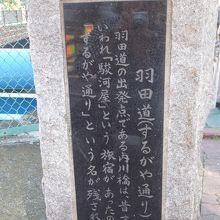 羽田道(するがや通り)
羽田道の出発点である内川橋は、昔
いわれ「駿河屋」という旅宿があった
「するがや通り」という名が残され